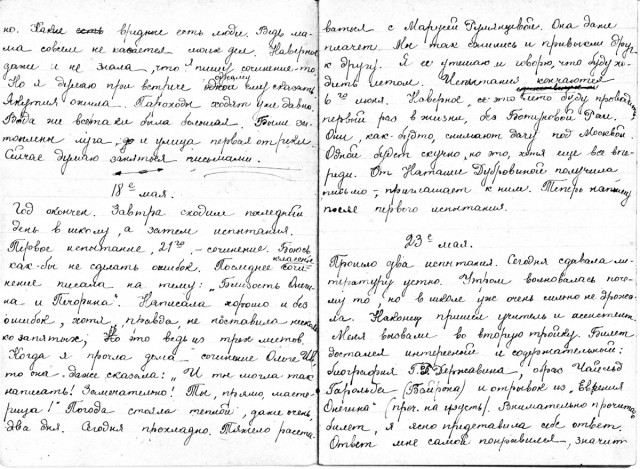 но. Какие есть вредные есть люди. Ведь ма-
ма совсем не касается моих дел. Наверное
даже и не знала, что я пишу сочинение-то.
Но я думаю при встрече ему сказать
Якутия ожила. Пароходы ходят уже давно.
Вода же всё-таки была большая. Были за-
топлены луга, и улица первая от реки.
Сейчас думаю заняться письмами.
18е мая.
Год окончен. Завтра сходим последний
день в школу, а затем испытания.
Первое испытание, 21го, – сочинение. Боюсь
как-бы не сделать ошибок. Последнее классное сочи-
нение писала на тему: „Близость Онеги-
на и Печорина". Написала хорошо и без
ошибок, хотя, правда, не поставила несколько
запятых, Но это ведь из трёх листов.
Когда я прочла дома – сочинение Ольге
то она даже сказала: „И ты могла так
написать! Замечательно! Ты, прямо, масте-
рица!" Погода стояла теплой, даже очень,
два дня. Сегодня прохладно. Тяжело расста-
ваться с Марусей Румянцевой. Она даже
плачет. Мы так сжились и привыкли друг
к другу. Я её утешаю и говорю, что буду хо-
дить летом. Испытания кончаются
6го июня. Наверное, это лето буду проводить
первый раз в жизни, без Ботыровой Раи.
Они, как-будто, снимают дачу под Москвой.
Одной будет скучно, но это, хотя еще все впе-
реди. От Наташи Дубровиной получила
письмо, – приглашает к ним. Теперь напишу
после первого испытания.
23е мая.
Прошло два испытания. Сегодня сдавала ли-
тературу устно. Утром волновалась поче-
му то, но в школе уж очень сильно не дрожа-
ла. Наконец пришёл учитель и ассистент.
Меня вызвали во вторую тройку. Билет
достался интересный и содержательный:
биография Г. Державина, образ Чайльд
Гарольда (Байрона) и отрывок из „Евгения
Онегина" (проч. наизусть). Внимательно прочитав
билет, я ясно представила себе ответ.
Ответ мне самой понравился, значит